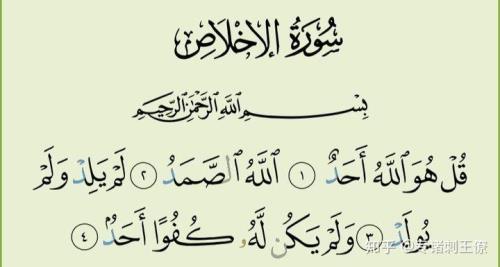 سُورَةُ الإِخْلَاصِ
بِسْمِ اللَّهِ الرَّحْمَٰنِ الرَّحِيمِ
قُلْ هُوَ ٱللَّهُ أَحَدٌ ١ ٱللَّهُ ٱلصَّمَدُ ٢ لَمْ يَلِدْ وَلَمْ
يُولَدْ ٣ وَلَمْ يَكُن لَّهُۥ كُفُوًا أَحَدٌۢ ٤
知乎 @专诸刺王僚